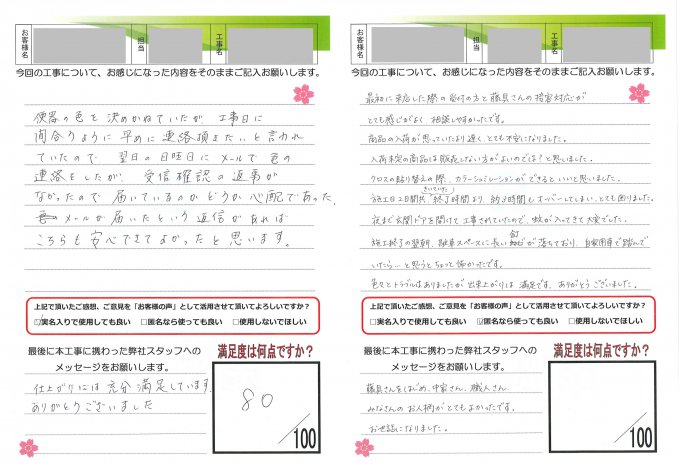 お客様名
担当
工事名
今回の工事について、お感じになった内容をそのままご記入お願いします。
便器の色を決めかねていたが、工事日に
間合うように早めに連絡頂きたいと言われ
ていたので翌日の日曜日にメールで色の
連絡をしたが、受信確認の返事が
なかったので届いているのかどうか心配であった。
メールが届いたという返信があれば
こちらも安心できてよかったと思います。
上記で頂いたご感想、ご意見を「お客様の声」として活用させて頂いてよろしいですか？
☑実名入りで使用しても良い □匿名なら使っても良い □使用しないでほしい
最後に本工事に携わった弊社スタッフへの
メッセージをお願いします。
仕上がりには充分満足しています。
ありがとうございました
満足度は何点ですか？
80
/100
お客様名
担当
工事名
今回の工事について、お感じになった内容をそのままご記入お願いします。
最初に来店した際の受付の方と藤具さんの接客対応が
とても感じがよく相談しやすかったです。
商品の入荷が思っていたより遅く、とても不安になりました。
入荷未定の商品は販売しない方がよいのでは？と思いました。
クロスの貼り替えの際、カラーシミュレーションができるといいと思いました。
施工日2日間共「終了時間」よりきいていた約2時間もオーバーしてしまい、とても困りました。
夜まで玄関ドアを開けて工事されていたので、蚊が入ってきて大変でした。
施工終了の翌朝、駐車スペースに長い釘が落ちており、自家用車で踏んで
いたら…と思うとちょっと怖かったです。
色々とトラブルはありましたが出来上がりは満足です。ありがとうございました。
上記で頂いたご感想、ご意見を「お客様の声」として活用させて頂いてよろしいですか？
□実名入りで使用しても良い ☑匿名なら使っても良い □使用しないでほしい
最後に本工事に携わった弊社スタッフへの
メッセージをお願いします。
藤具さんをはじめ、中家さん、職人さん
みなさんのお人柄がとてもよかったです。
お世話になりました。
満足度は何点ですか？
/100